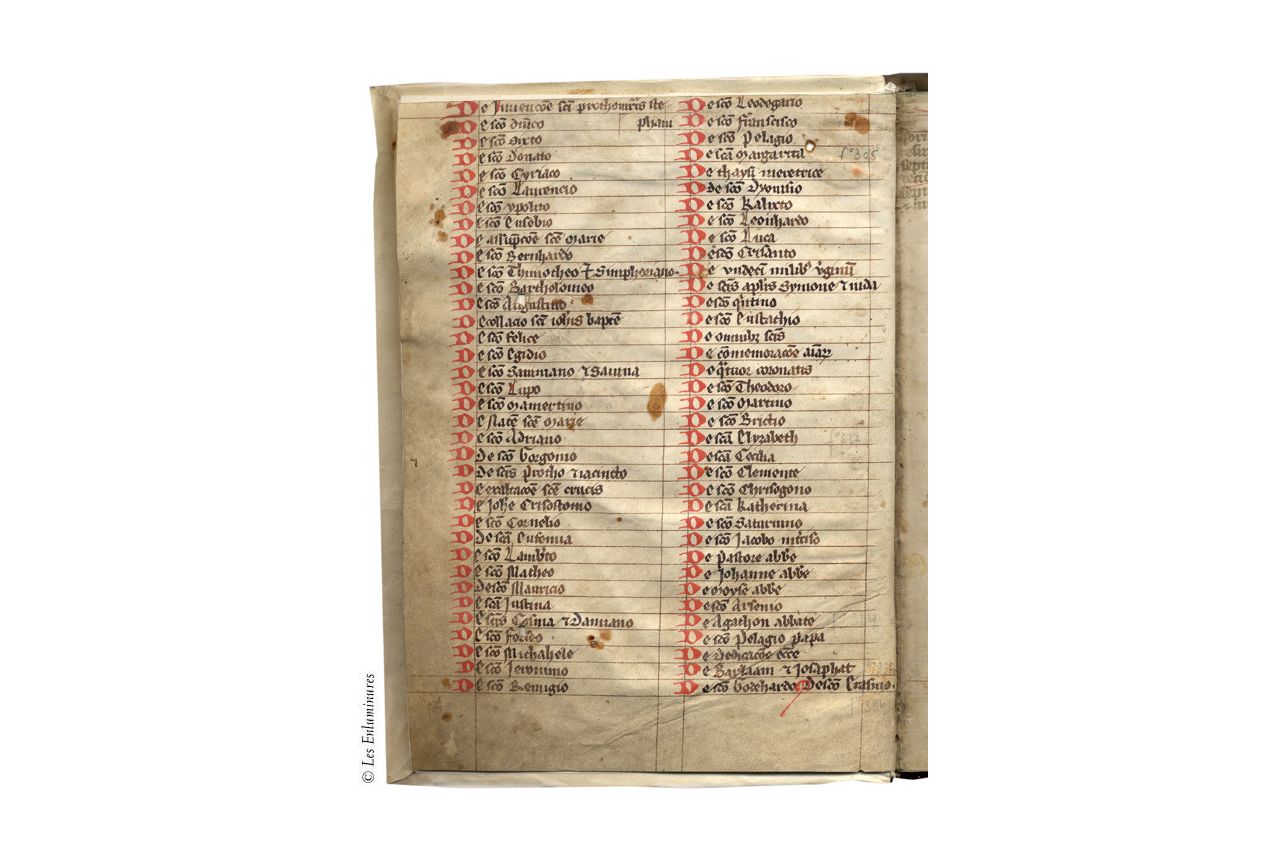 De Inuencōe scī prothomr̄is ste
phani
De scō dn̄ico
De scō Sixto
De scō Donato
De scō Cyriaco
De scō Laurencio
De scō ypolito
De scō Eusebio
De assūpcōe scē Marie
De scō Bernhardo
De scō Thimotheo & Simphoriano.
De scō Bartholomeo
De scō Augustino
Decollacio scī ioh̄is bapt̄e
De scō felice
De scō Egidio
De scō Sauiniano & Sauina
De scō Lupo
De scō Mamertino
De Natē scē Marie
De scō Adriano
De scō Gorgonio
De scīs Protho & iacincto
De exaltacōe scē crucis
De Joh̄e Crisostomo
De scō Cornelio
De scā Eufemia
De scō Lamb̄to
De scō Matheo
De scō Mauricio
De scā Justina
De scīs Cosma & Damiano
De scō Forseo
De scō Michahele
De scō Jeronimo
De scō Remigio
De scō Leodegario
De scō francisco
De scō Pelagio
De scā Margarita
fo 305
De thaysi meretrice
De scō Dyonisio
De scō Kalixto
De scō Leonhardo
De scō Luca
De scō Crisanto
De vndeci milibꝰ v̄ginū
De scīs apl̄is Symone & iuda
De scō q̄ntino
De scō Eustachio
De omnibꝫ scīs
De cōmemoracōe aīaꝝ
De q̄tuor coronatis
De scō Theodoro
De scō Martino
De scō Brictio
De scā Elyzabeth
De scā Cecilia
De scō Clemente
De scō Chrisogono
De scā Katherina
De scō Saturnino
De scō Jacobo int̄ciso
De Pastore abb̄e
De Johanne abb̄e
De Moyse abb̄e
De scō Arsenio
De Agathon abbate
De scō Pelagio papa
De dedicacōe ecc̄e
De Barlaam & Josaphat
De scō Gotehardo De scō Erasmo.
© Les Enluminures